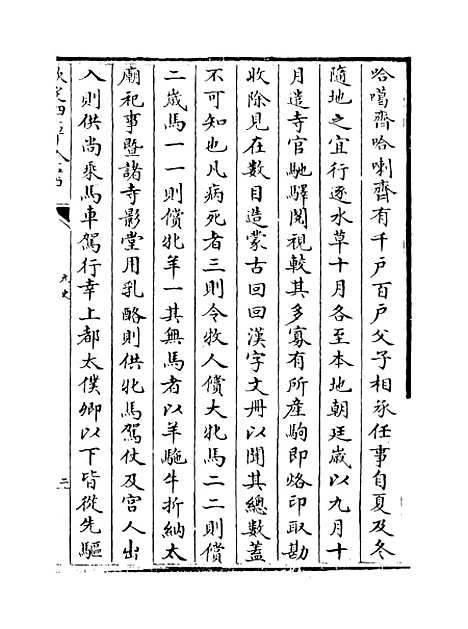 哈噶齊哈喇齊有千戶百戶父子相承任事自夏及冬
隨地之宜行逐水草十月各至本地朝廷歲以九月十
月遣寺官馳驛閱視較其多寡有所産駒即烙印取勘
收除見在數目造蒙古回回漢字文冊以聞其總數蓋
不可知也凡病死者三則令牧人償大牝馬二二則償
二歲馬一一則償牝羊一其無馬者以羊駞牛折納太
廟祀事曁諸寺影堂用乳酪則供牝馬駕仗及宮人出
入則供尚乘馬車駕行幸上都太僕卿以下皆從先驅
欽定四庫全書
元史
三